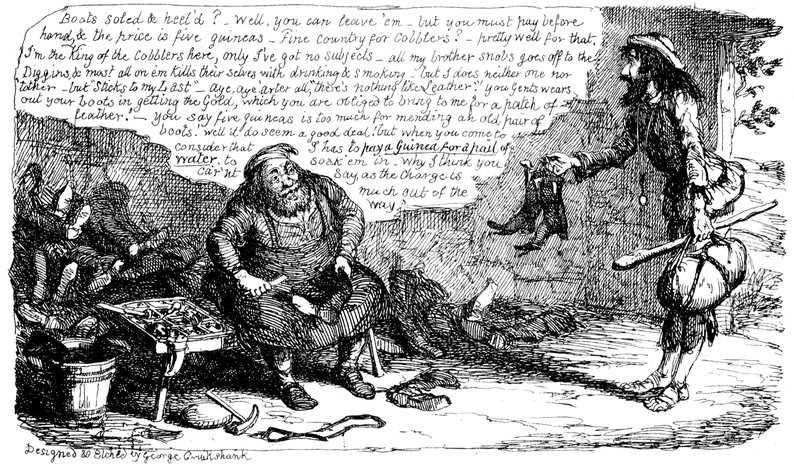 Boots soled & heel'd? - Well, you can leave 'em - but you must pay before
hand, & the price is five guineas - Fine Country for Cobblers? - pretty well for that,
I'm the King of the Cobblers here, only I've got no subjects - all my brother snobs goes off to the
Diggins & most all on em kills their selves with drunking & smoking - but I does neither one nor
tother - but "Sticks to my Last" - aye, aye, arter all, "there's nothing like Leather": you Gents wears
out your boots in getting the Gold, which you are obliged to bring to me for a patch of
leather! - you say five guineas is too much for mending an old pair of
boots. Well it do seem a good deal! but when you come to
consider that I has to pay a Guinea for a pail of
water, to soak 'em in - why I think you
carn't say, as the Charge is
much out of the
way.
Designed & Etched by George Cruikshank